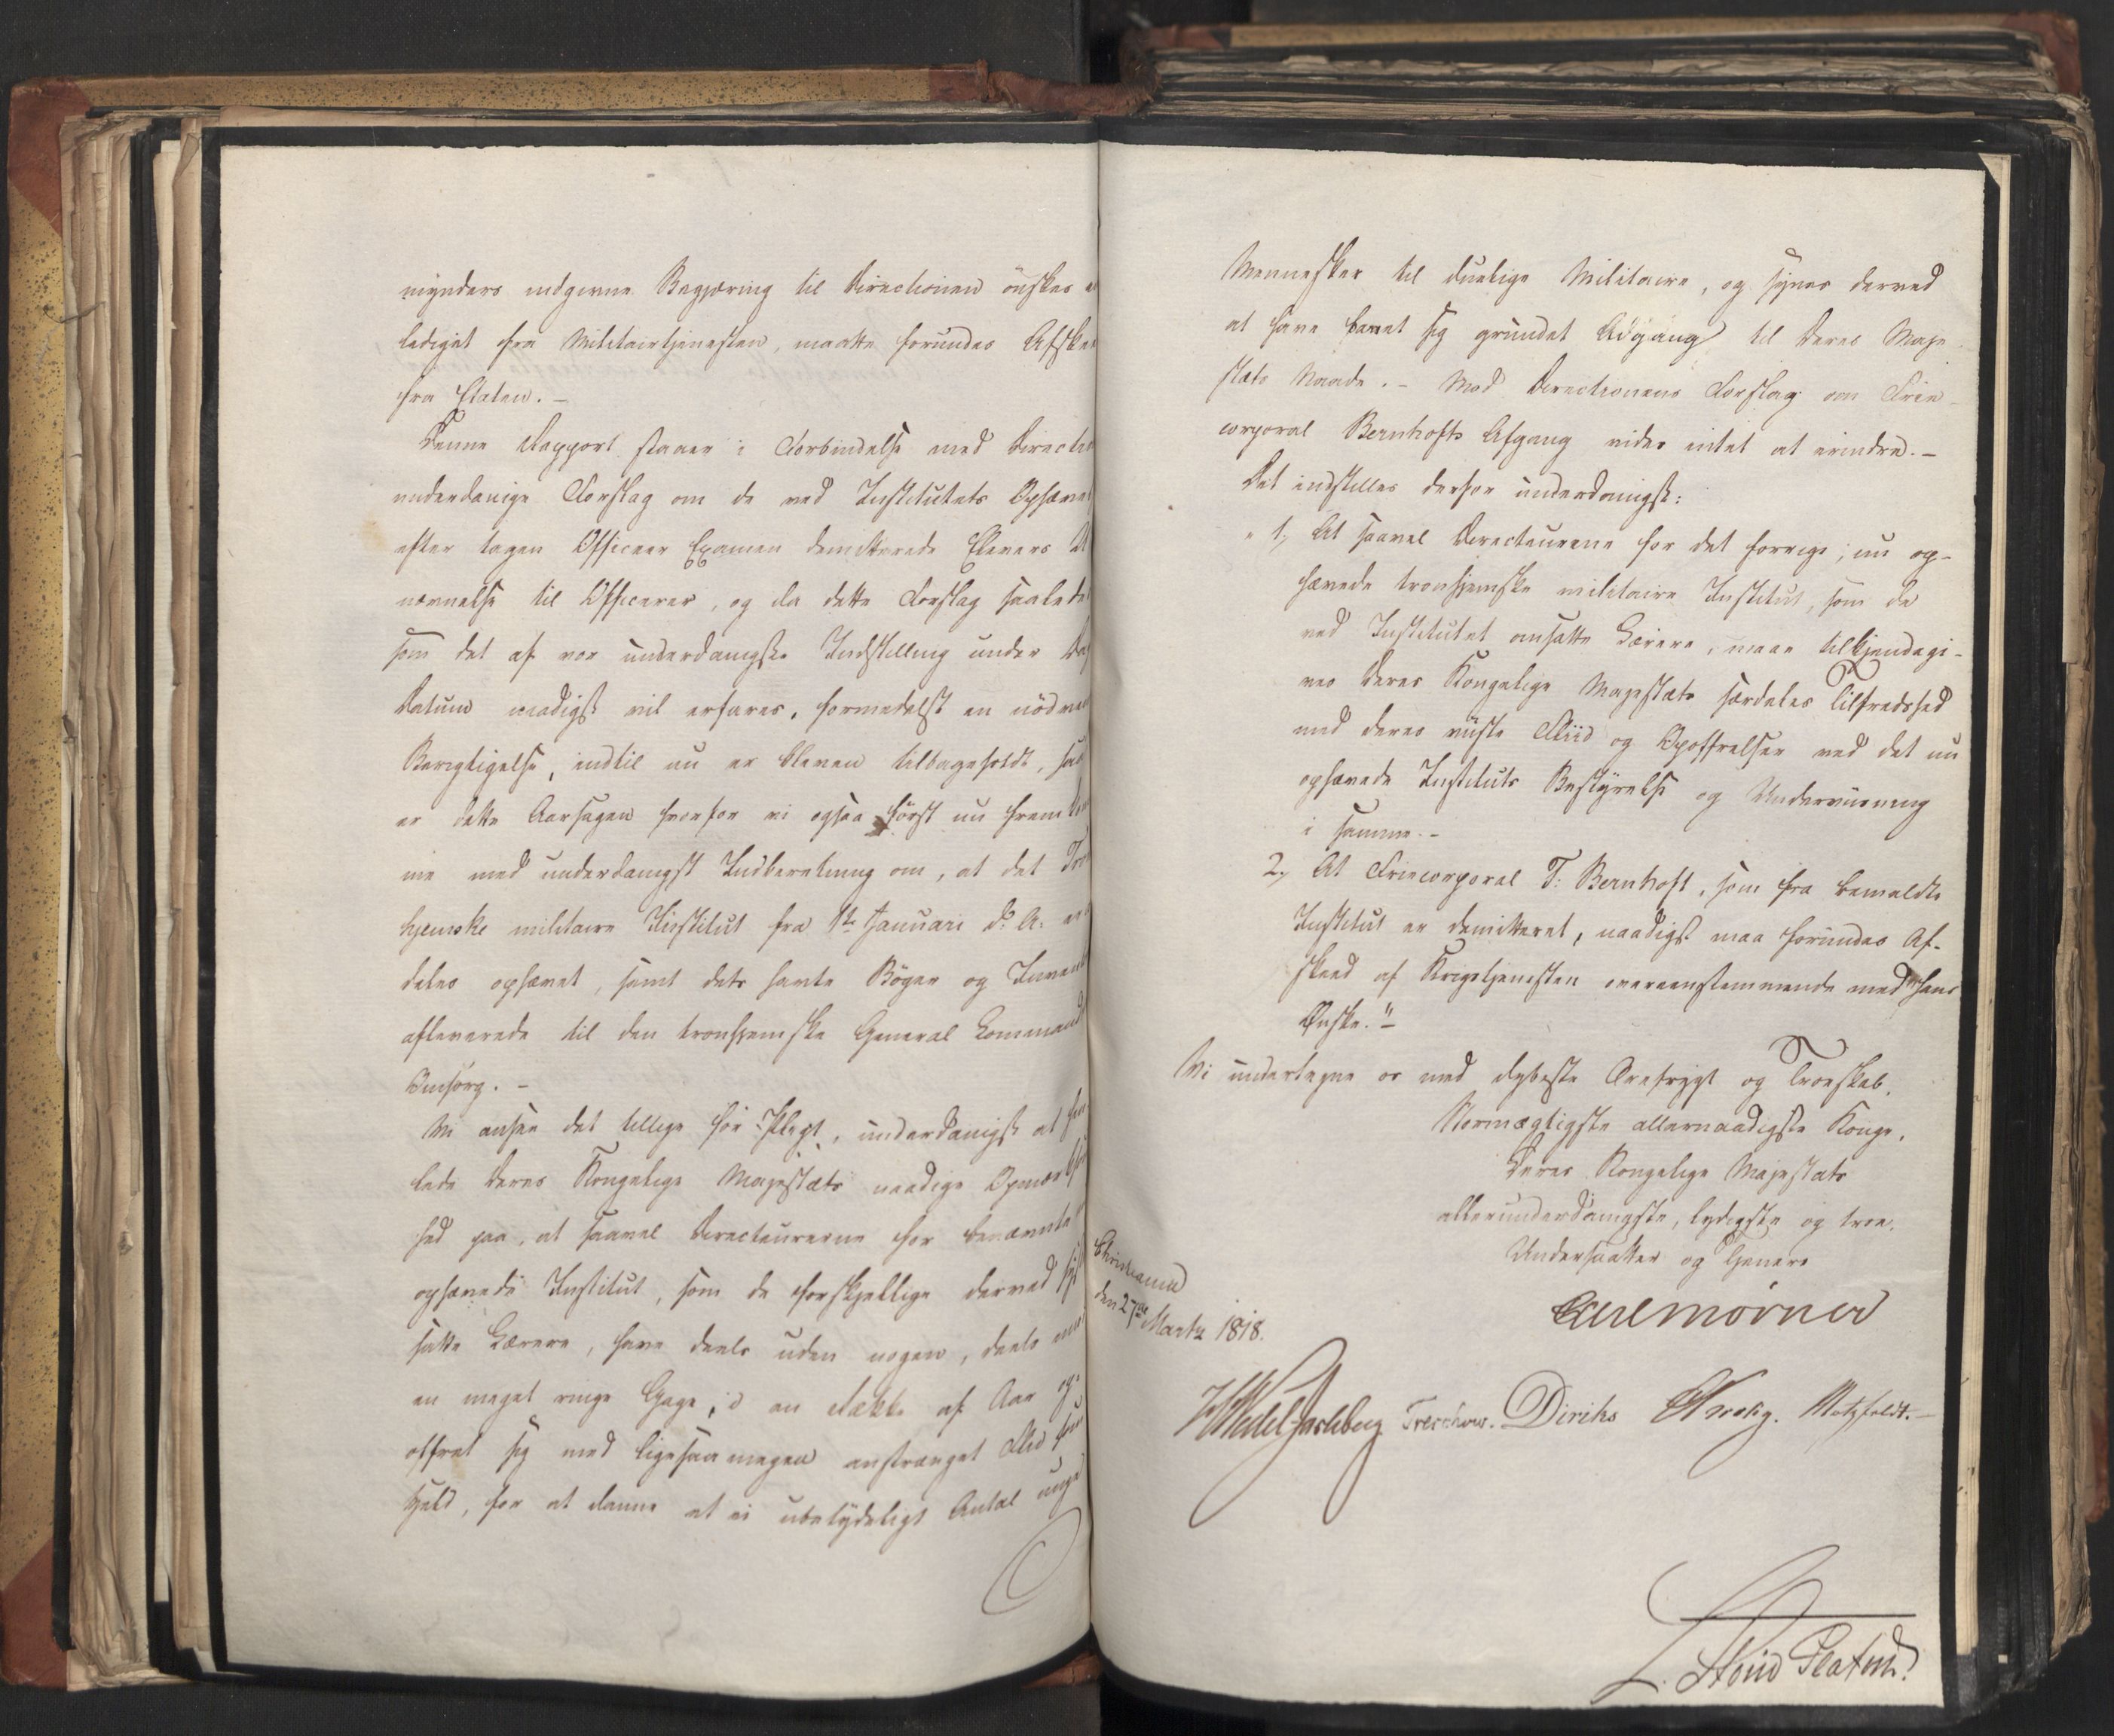 mynders indgivne Begjæring til Directionen önskes
lediget fra Militairtjenesten, maatte forundes Afske
fra Etaten. –
Denne Rapport staaer i Forbindelse med Directio
underdanige Forslag om de ved Institutets Ophævel
efter tagen Officeer Examen demitterede Elevers U
nævnelse til Officerer, og da dette Forslag saaledes
som det af vor underdanigste Indstilling under Da
Datum naadigst vil erfares, formedelst en nödven
Berigtigelse, indtil nu er bleven tilbageholdt, saa
er dette Aarsagen hvorfor vi ogsaa först nu frem
me med underdanigst Indberetning om, at det Tro
hjemske militaire Institut fra 1ste Januari d: A: er
deles ophævet, samt dets havte Böger og Invent
afleverede til den tronhjemske General Commando
Omsorg. –
Vi ansee det tillige for Pligt, underdanigst at hen
lede Deres Kongelige Majestæts naadige Opmærk
hed paa, at saavel Directeurerne for benævnte
ophævede Institut, som de forskjellige derved
satte Lærere, have deels uden nogen, deels
en meget ringe Gage, i en Række af Aar op
offret sig med ligesaa megen anstrænget Flid
held, for at danne et ei ubetydeligt Antal unge
Mennesker til duelige Militaire, og synes derved
at have banet sig grundet Adgang til Deres Maje
stæts Naade. – Mod Directionens Forslag om Frie
corporal Bernhofts Afgang vides intet at erindre. –
Det indstilles derfor underdanigst:
" 1., At saavel Directeurene for det forrige, nu op-
hævede tronhjemske militaire Institut, som de
ved Institutet ansatte Lærere, maae tilkjendegi-
ves Deres Kongelige Majestæts særdeles Tilfredshed
med deres viiste Fliid og Opoffrelser ved det nu
ophævede Instituts Bestyrelse og Underviisning
i samme. –
2., At Friecorporal T: Bernhoft, som fra bemeldte
Institut er demitteret, naadigst maa forundes Af-
skeed af Krigstjenesten overeensstemmende med hans
Önske." –
Vi undertegne os med dybeste Ærefrygt og Troeskab.
Stormægtigste allernaadigste Konge,
Deres Kongelige Majestæts
allerunderdanigste, lydigste og troe
Undersaatter og Tjenere
Christiania
den 27de Martz 1818.
Carl Mörner
HWedel Jarlsberg Treschow. Diriks Krohg. Motzfeldt. –
L. Stoud Platou.